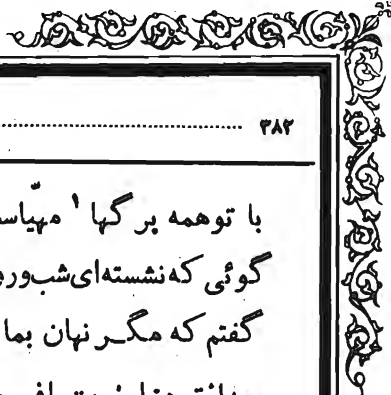 ۳۸۲
با توهمه برگها ۱ مهیّاست
گوئی که نشسته‌ای شب‌ورو
گفتم که مگر نهان بما